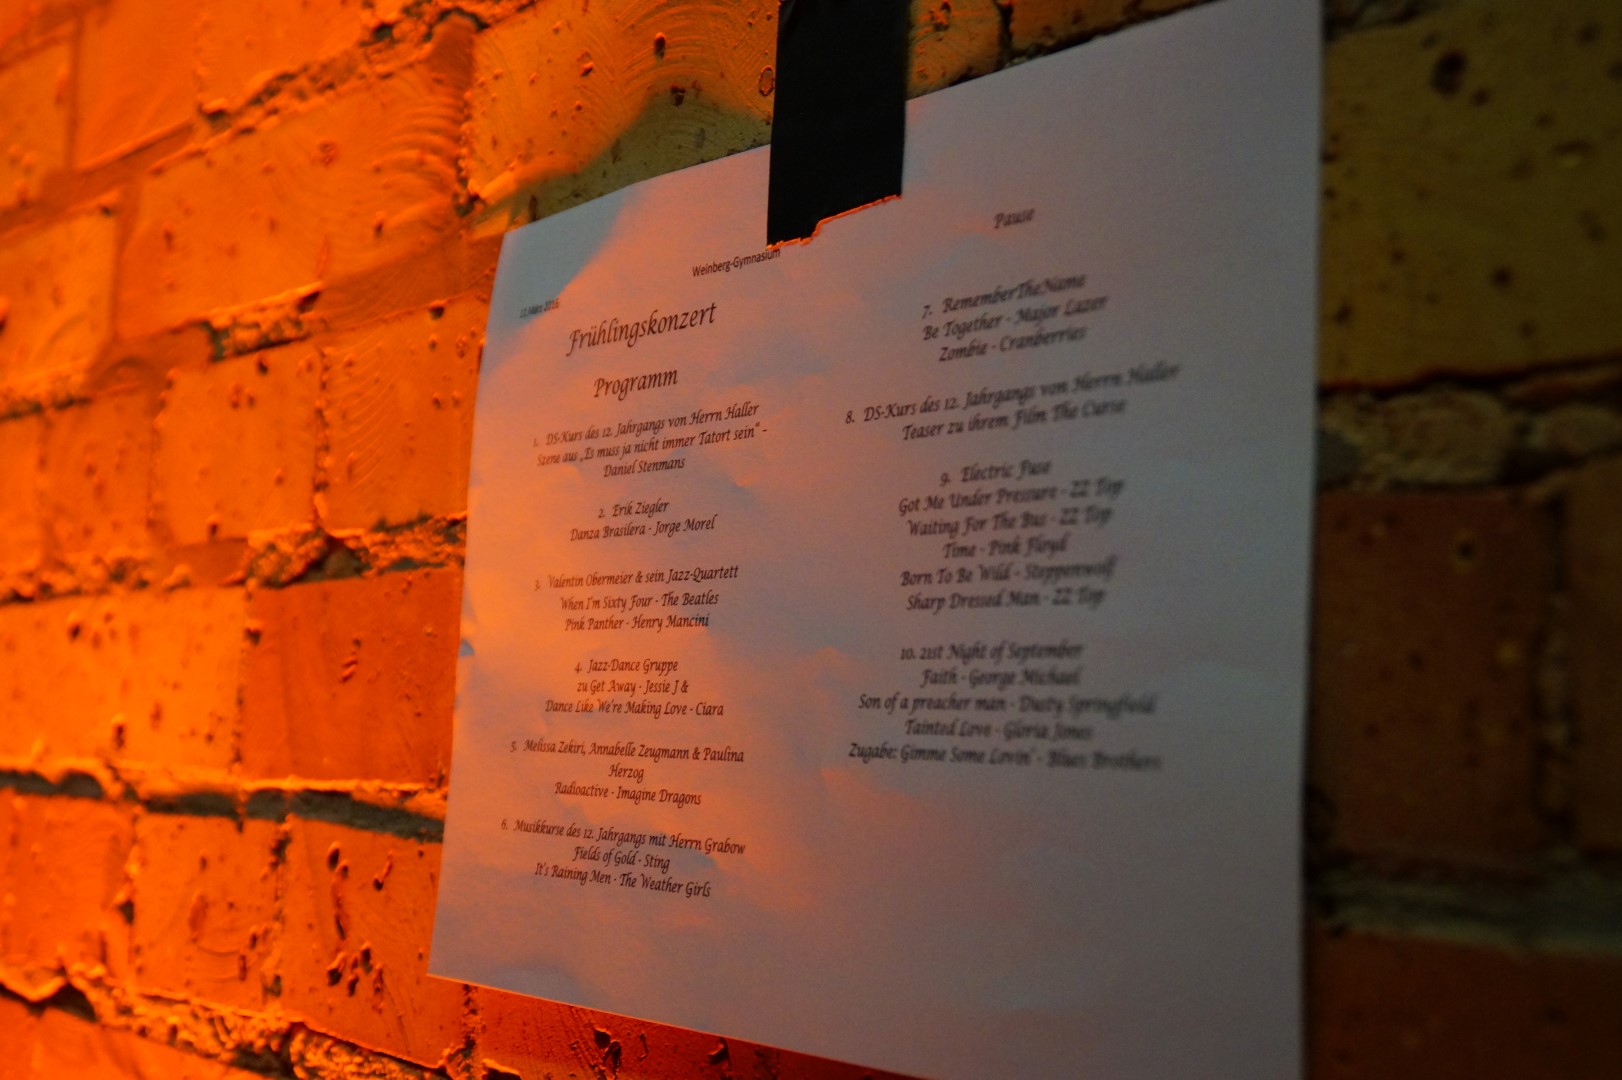 Weinberg-Gymnasium
Frühlingskonzert
Programm
1. DS-Kurs des 12. Jahrgangs von Herrn Haller
Szene aus „Es muss ja nicht immer Tatort sein“ -
Daniel Stenmans
2. Erik Ziegler
Danza Brasilera - Jorge Morel
3. Valentin Obermeier & sein Jazz-Quartett
When I'm Sixty Four - The Beatles
Pink Panther - Henry Mancini
4. Jazz-Dance Gruppe
zu Get Away - Jessie J &
Dance Like We're Making Love - Ciara
5. Melissa Zekiri, Annabelle Zeugmann & Paulina
Herzog
Radioactive - Imagine Dragons
6. Musikkurse des 12. Jahrgangs mit Herrn Grabow
Fields of Gold - Sting
It's Raining Men - The Weather Girls
Pause
7. RememberTheName
Be Together - Major Lazer
Zombie - Cranberries
8. DS-Kurs des 12. Jahrgangs von Herrn Haller
Teaser zu ihrem Film The Curse
9. Electric Fuse
Got Me Under Pressure - ZZ Top
Waiting For The Bus - ZZ Top
Time - Pink Floyd
Born To Be Wild - Steppenwolf
Sharp Dressed Man - ZZ Top
10. 21st Night of September
Faith - George Michael
Son of a preacher man - Dusty Springfield
Tainted Love - Gloria Jones
Zugabe: Gimme Some Lovin' - Blues Brothers